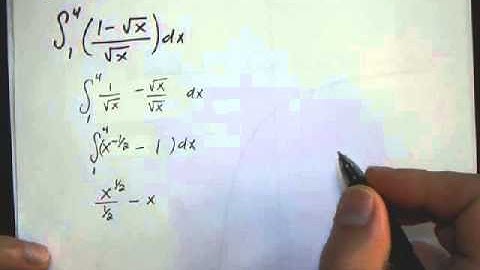 ∫₁⁴ ((1-√x)/√x) dx
∫₁⁴ 1/√x - √x/√x dx
∫₁⁴ (x^(-1/2) - 1) dx
x^(1/2)/(1/2) - x